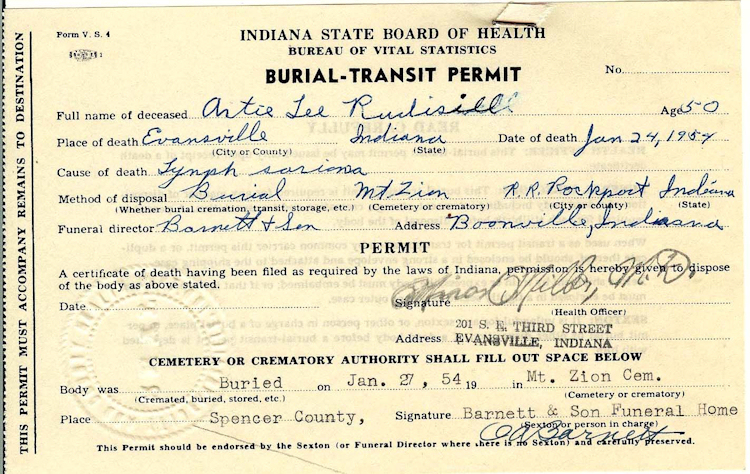 THIS PERMIT MUST ACCOMPANY REMAINS TO DESTINATION
Form V. S. 4
INDIANA STATE BOARD OF HEALTH
BUREAU OF VITAL STATISTICS
BURIAL-TRANSIT PERMIT
No.
Full name of deceased Artie Lee Rudisill Age 50
Place of death Evansville Indiana Date of death Jan 24, 1954
(City or County) (State)
Cause of death Lymph
Method of disposal Burial Mt Zion R.R. Rockport Indiana
(Whether burial cremation, transit, storage, etc.) (Cemetery or crematory) (City or county) (State)
Funeral director Barnett & Son Address Boonville, Indiana
PERMIT
A certificate of death having been filed as required by the laws of Indiana, permission is hereby given to dispose
of the body as above stated.
Date Signature M.D.
(Health Officer)
201 S. E. THIRD STREET
Address EVANSVILLE, INDIANA
CEMETERY OR CREMATORY AUTHORITY SHALL FILL OUT SPACE BELOW
Body was Buried on Jan. 27, 54 19 in Mt. Zion Cem.
(Cremated, buried, stored, etc.) (Cemetery or crematory)
Place Spencer County, Signature Barnett & Son Funeral Home
(Sexton or person in charge)
Barnett
This Permit should be endorsed by the Sexton (or Funeral Director where there is no Sexton) and carefully preserved.